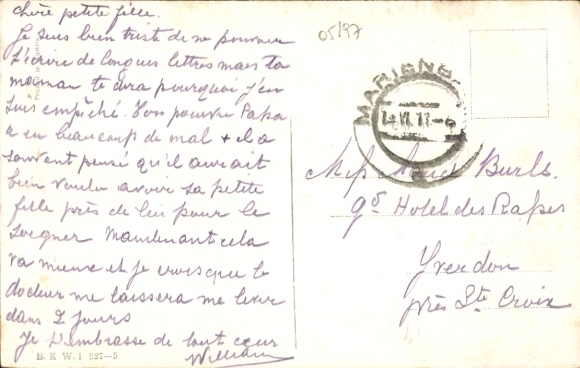 chère petite fille.
Je suis bien triste de ne pouvoir
t'écrire de longues lettres mais ta
maman te dira pourquoi j'en
suis empêché. Ton pauvre Papa
a eu beaucoup de mal + il a
souvent pensé qu'il aurait
bien voulu avoir sa petite
fille près de lui pour le
soigner Maintenant cela
va mieux et je crois que le
docteur me laissera me lever
dans 2 jours
Je t'embrasse de tout cœur
William
B. K. W. I. 927-5
05197
MARIGNO
Maud Burls.
Hotel des Rapes
Yverdon
près Ste Croix